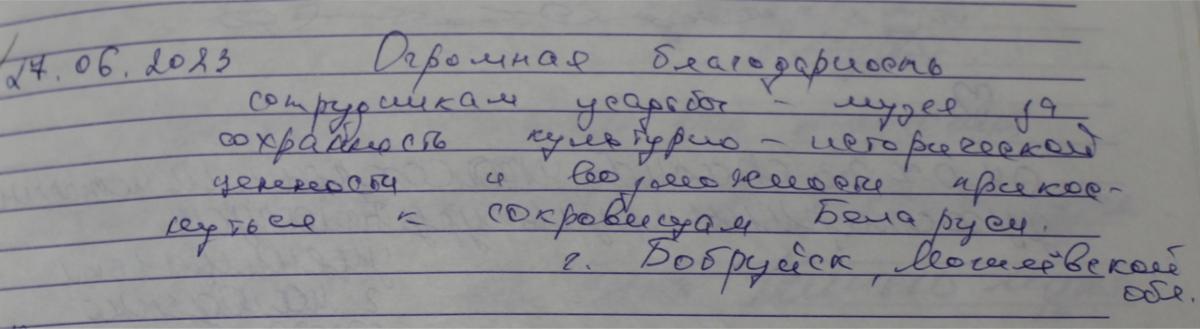 27.06.2023 Огромная благодарность
сотрудникам усадьбы - музея за
сохранность культурно - исторической
ценности и возможности прикос-
нуться к сокровищам Беларуси.
г. Бобруйск, Могилёвской
обл.